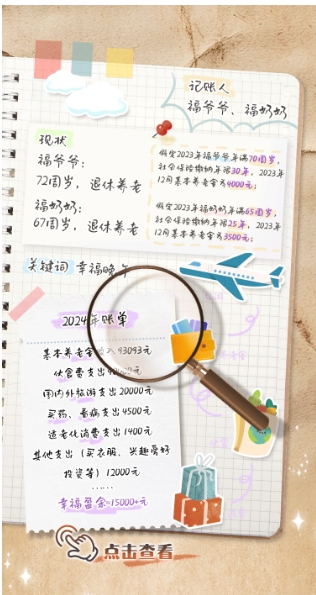 记账人
福爷爷、福奶奶
现状
福爷爷:
72周岁,退休养老
福奶奶:
67周岁,退休养老
假定2023年福爷爷年满70周岁,
社会保险缴纳年限30年,2023年
12月基本养老金为4000元;
假定2023年福奶奶年满65周岁,
社会保险缴纳年限25年,2023年
12月基本养老金为3500元;
关键词 幸福晚年
2024年账单
基本养老金 93093元
伙食费支出 元
国内外旅游支出20000元
买药、看病支出4500元
适老化消费支出1400元
其他支出(买衣服、兴趣爱好
投资等)12000元
......
幸福盈余15000+元
点击查看